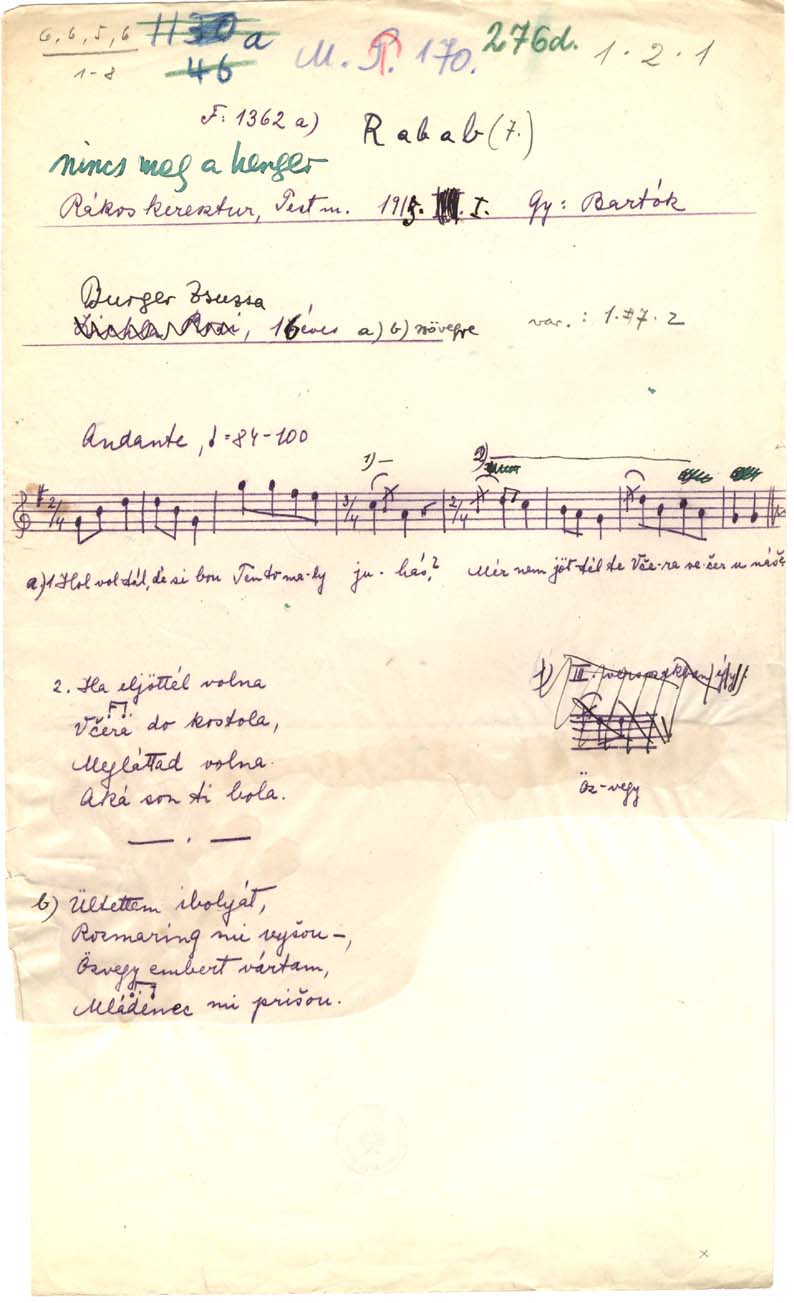 6, 6, 5, 6
1-8
1130 a
46
M. R. 170.
276d.
1 · 2 · 1
F: 1362 a)
Rabab (7.)
nincs meg a henger
Rákoskeresztur, Pest m. 1915. I. Gy: Bartók
Burger Zsuzsa
16 éves a) b) szövegre
var. : 1·#7·2
Andante, ♩=84-100
1)
2)
2/4 3/4 2/4
a) 1. Hol voltál, de si bou Tento ma-ly ju-hás,? Mér nem jöt-tél te Vče-ra ve-čer u náš?
2. Ha eljöttél volna
Včera do kostola,
Megláttad volna
Aká son ti bola.
1) III. versszakban
Öz-vegy
b) Ültettem ibolyát,
Rozmaring mi vyšou-,
Özvegy embert vártam,
Mládenec mi prišou.
x